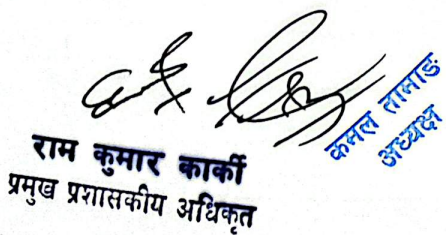 राम कुमार कार्की
प्रमुख प्रशासकीय अधिकृत
कमल तामाङ
अध्यक्ष